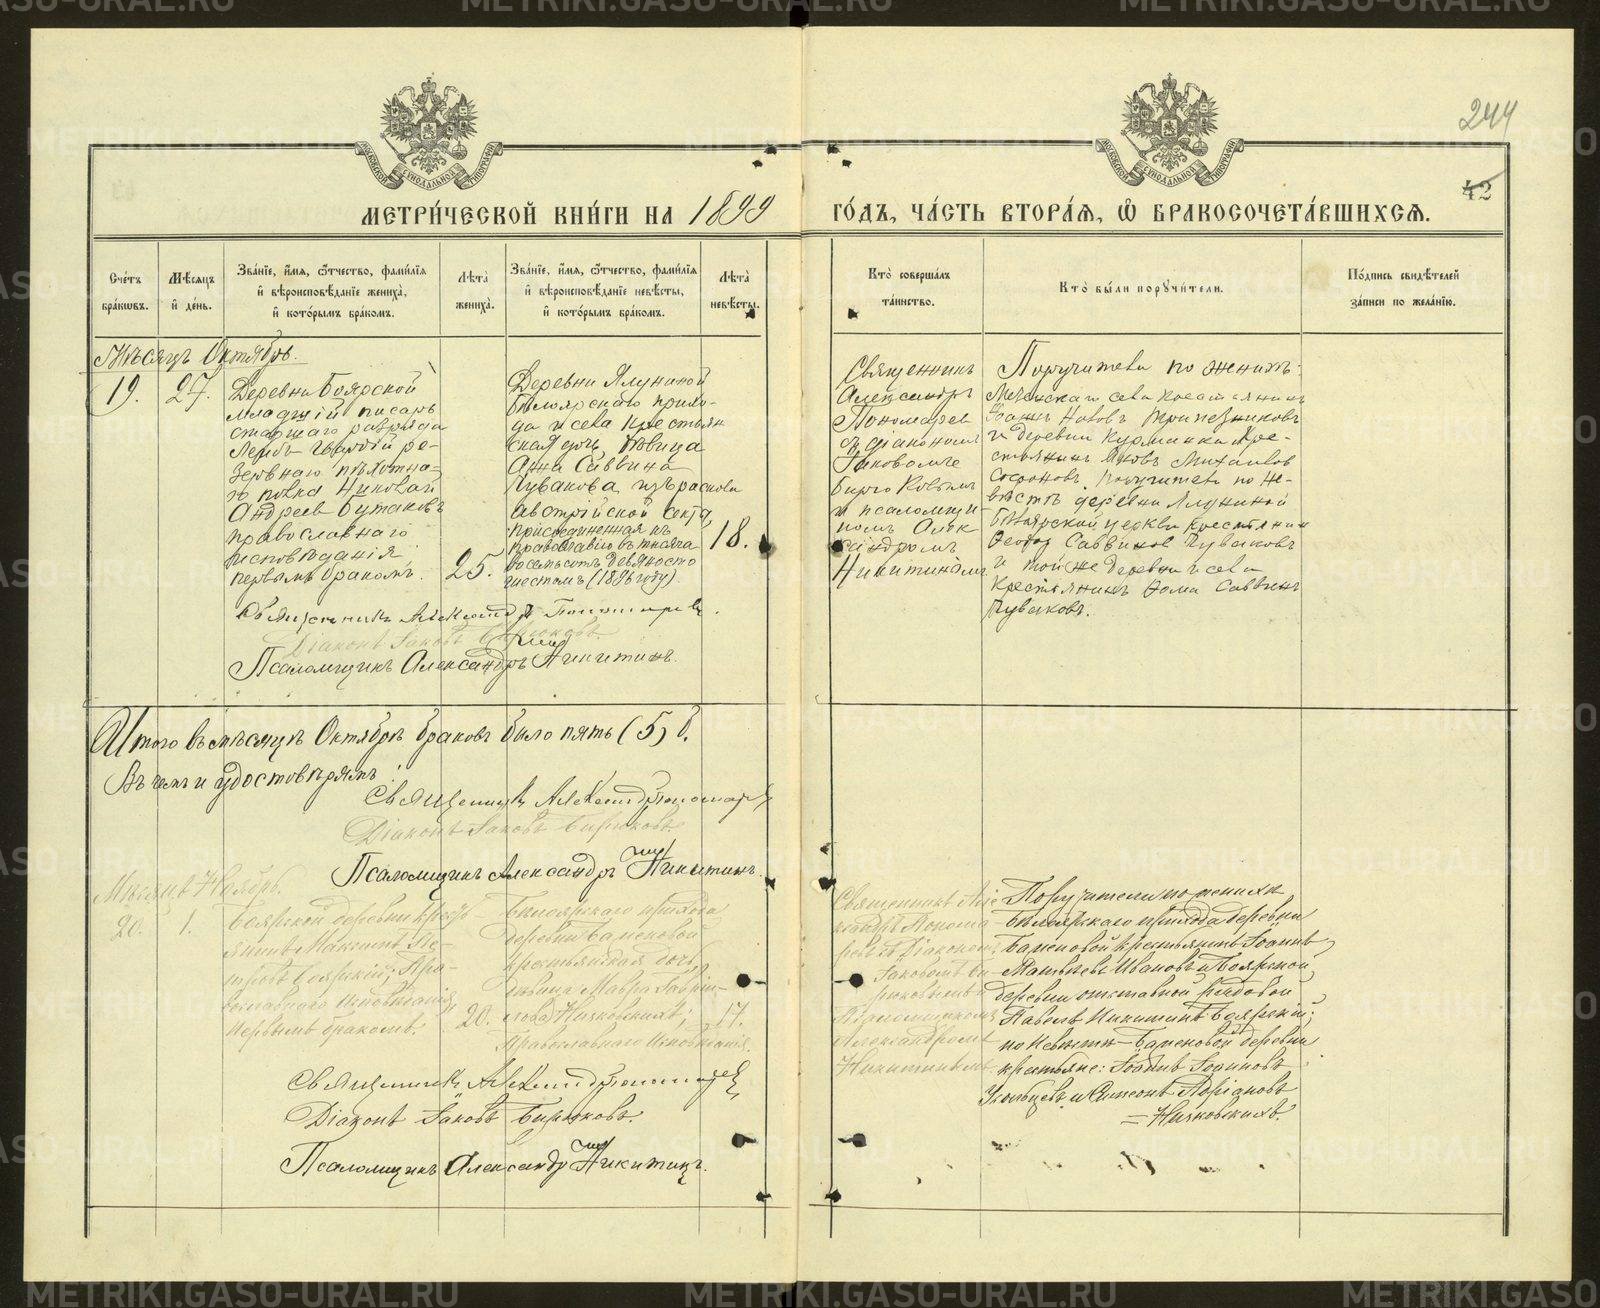 244
42
МОСКОВСКОЙ СѴНОДАЛЬНОЙ ТИПОГРАФІИ
МОСКОВСКОЙ СѴНОДАЛЬНОЙ ТИПОГРАФІИ
МЕТРИ́ЧЕСКОЙ КНИ́ГИ НА 1899 ГО́ДЪ, ЧА́СТЬ ВТОРА́Я, Ѿ БРАКОСОЧЕТА́ВШИХСЯ.
Сче́тъ бра́ковъ.
Мѣ́сяцъ и҆ де́нь.
Зва́нїе, и҆́мя, ѻ҆́тчество, фами́лїя
и҆ вѣроисповѣ́данїе жениха̀,
и҆ кото́рымъ бра́комъ.
Лѣта̀ жениха̀.
Зва́нїе, и҆́мя, ѻ҆́тчество, фами́лїя
и҆ вѣроисповѣ́данїе невѣ́сты,
и҆ кото́рымъ бра́комъ.
Лѣта̀ невѣ́сты.
Кто̀ соверша́лъ та́инство.
Кто̀ бы́ли порꙋчи́тели.
По́дпись свидѣ́телей за́писи по жела́нїю.
Мѣсяцъ Октябрь.
19.
27.
Деревни Боярской
младшій писарь
старшаго разряда
Лейбъ гвардіи ре-
зервнаго пѣхотна-
го полка Николай
Андреевъ Бутаковъ
православнаго
исповѣданія
первымъ бракомъ.
25.
Деревни Ялуниной
Бѣлоярскаго прихо-
да и села крестьян
ская дочь дѣвица
Анна Саввина
Чувакова, изъ раскола
Австрійской секты,
присоединенная къ
православію въ тысяча
восемьсотъ девяносто
шестомъ (1896 году).
18.
Священникъ
Александръ
Пономаревъ
съ діакономъ
Іаковомъ
Бирюковымъ
и псаломщи-
комъ Алек-
сандромъ
Никитинымъ
Поручители по женихѣ:
села крестьянинъ
Іоаннъ
и деревни Курманки кре-
стьянинъ Яковъ Михаиловъ
Сафоновъ. Поручители по не-
вѣстѣ деревни Ялуниной
Бѣлоярской церкви крестьянин
Ѳеодоръ Саввинъ Чуваковъ
и той же деревни и села
крестьянинъ Ѳома Саввинъ
Чуваковъ.
Священникъ Александръ Пономаревъ.
Діаконъ Іаковъ Бирюковъ
Псаломщикъ Александръ Никитинъ.
Итого въ мѣсяцѣ Октябрѣ браковъ было пять (5) б.
Въ чемъ и удостовѣряемъ:
Священникъ Александръ Пономаревъ
Діаконъ Іаковъ Бирюковъ
Псаломщикъ Александръ Никитинъ.
Мѣсяцъ Ноябрь.
20.
1.
Боярской деревни кресть
янинъ Максимъ Пе-
тровъ Боярскій; Пра-
вославнаго исповѣданія,
первымъ бракомъ.
20.
Бѣлоярскаго прихода
деревни Баженовой
крестьянская дочь,
дѣвица Мавра Гаврі-
лова
Православнаго исповѣданія.
17.
Священникъ Алек
сандръ Понома
ревъ съ Діакономъ
Іаковомъ Би
рюковымъ и
Псаломщикомъ
Александромъ
Никитинымъ
Поручители по женихѣ
Бѣлоярскаго прихода деревни
Баженовой крестьянинъ Іоаннъ
Матвѣевъ Ивановъ и Боярской
деревни отставной рядовой
Павелъ Никитинъ Боярскій;
по невѣстѣ – Баженовой деревни
крестьяне: Іоаннъ
и Симеонъ Адріановъ
Священникъ Александръ Пономаревъ
Діаконъ Іаковъ Бирюковъ.
Псаломщикъ Александръ Никитинъ.
METRIKI.GASO-URAL.RU